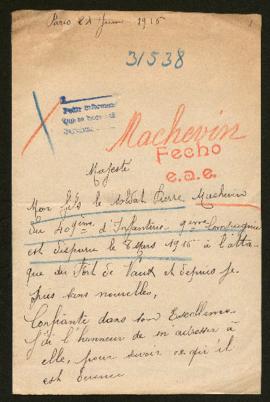 Paris 24 Juin 1916
31538
Machevin
Fecho
e.a.e.
Majesté
Mon fils le soldat Pierre Machevin
du 409ème d'Infanterie 9ème Compagnie
est disparu le 8 Mars 1916 à l'atta-
que du Fort de Vaux et depuis je
suis sans nouvelles,
Confiante dans son Excellence
j'ai l'honneur de m'adresser à
elle, pour savoir ce qu'il
est devenu